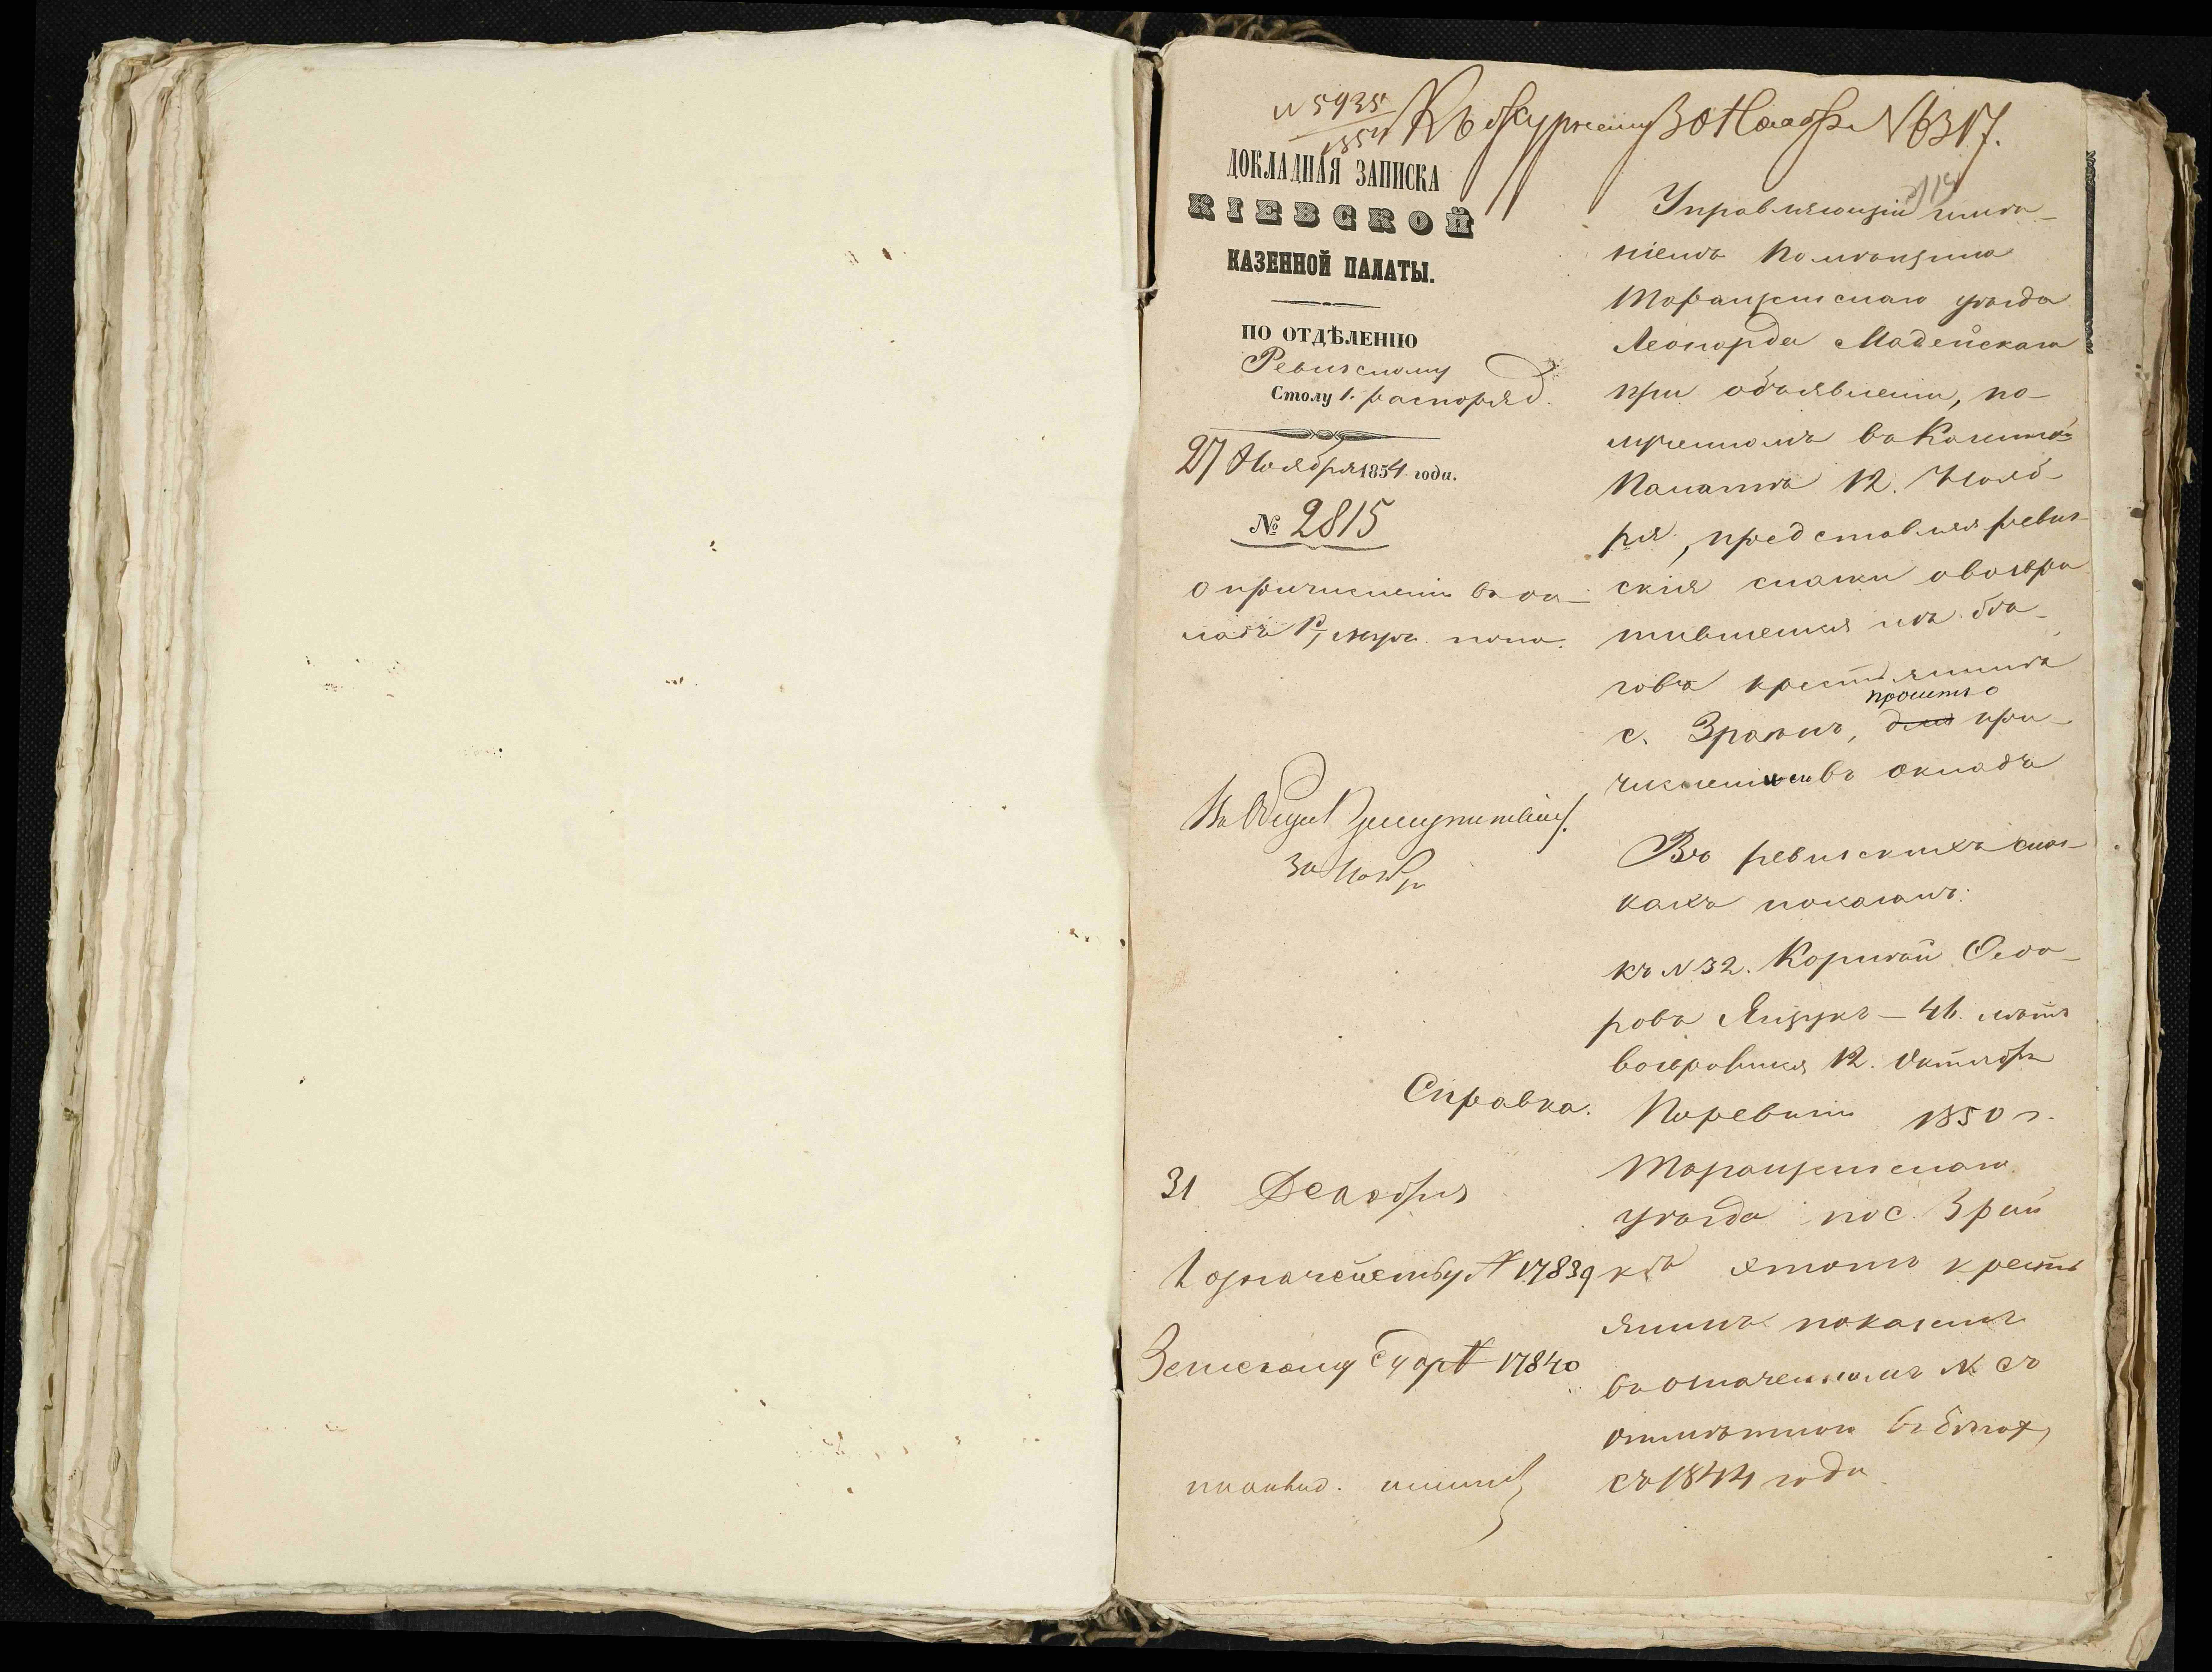 N 5935
1854
Къ журналу 30 Ноября N 6317.
ДОКЛАДНАЯ ЗАПИСКА
КІЕВСКОЙ
КАЗЕННОЙ ПАЛАТЫ.
ПО ОТДѢЛЕНІЮ
Ревизскому
Столу 1. распоряд.
27 Ноября 1854 года.
№ 2815
О причисленіи въ ок-
ладъ 1й муж. пола.
30 Ноябр
Справка.
31 Декабря
Казначейству N 17839
Земскому Суду N 17840
Управляющій имѣ-
ніемъ помѣщика
Таращанскаго уѣзда
Леонарда Мадейскаго
при объявленіи, по-
лученномъ въ Казенной
Палатѣ 12. Нояб-
ря, представляя ревиз-
скія сказки о возвра
тившемся изъ бѣ-
говъ крестьянинѣ
проситъ о
с. Зракъ, для при-
численіи въ окладъ
Въ ревизскихъ сказ-
кахъ показанъ:
къ N 32. Корнѣй Ѳедо-
ровъ Ящукъ – 41. лѣтъ
возвратился 12. Октября
По ревизіи 1850 г.
Таращанскаго
уѣзда по с. Зрай
кѣ этотъ кресть
янинъ показанъ
въ означенномъ N съ
отмѣткою въ бѣгахъ
съ 1844 года.